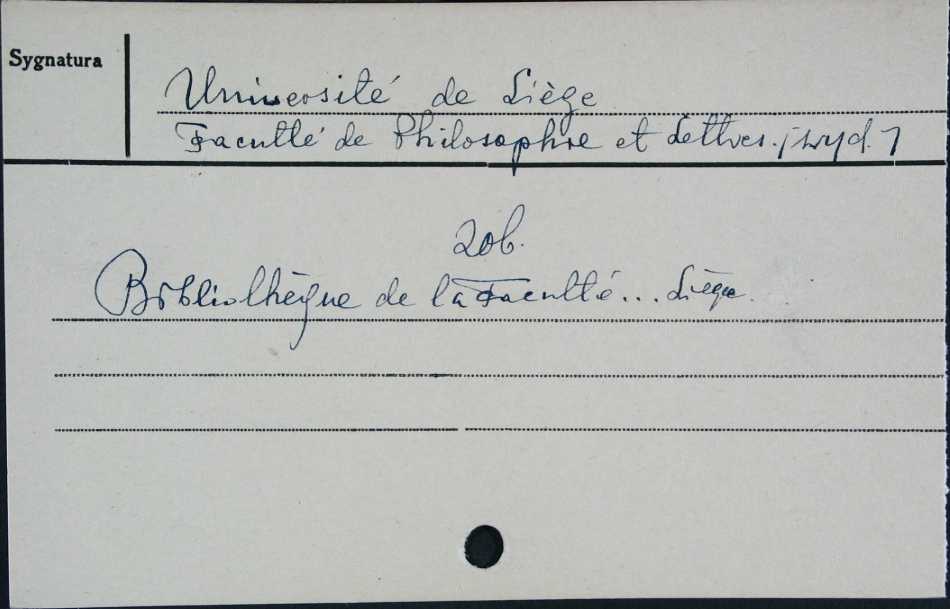 Sygnatura
Université de Liège
Faculté de Philosophie et Lettres. [wyd.]
zob.
Bibliothèque de la Faculté... Liège.